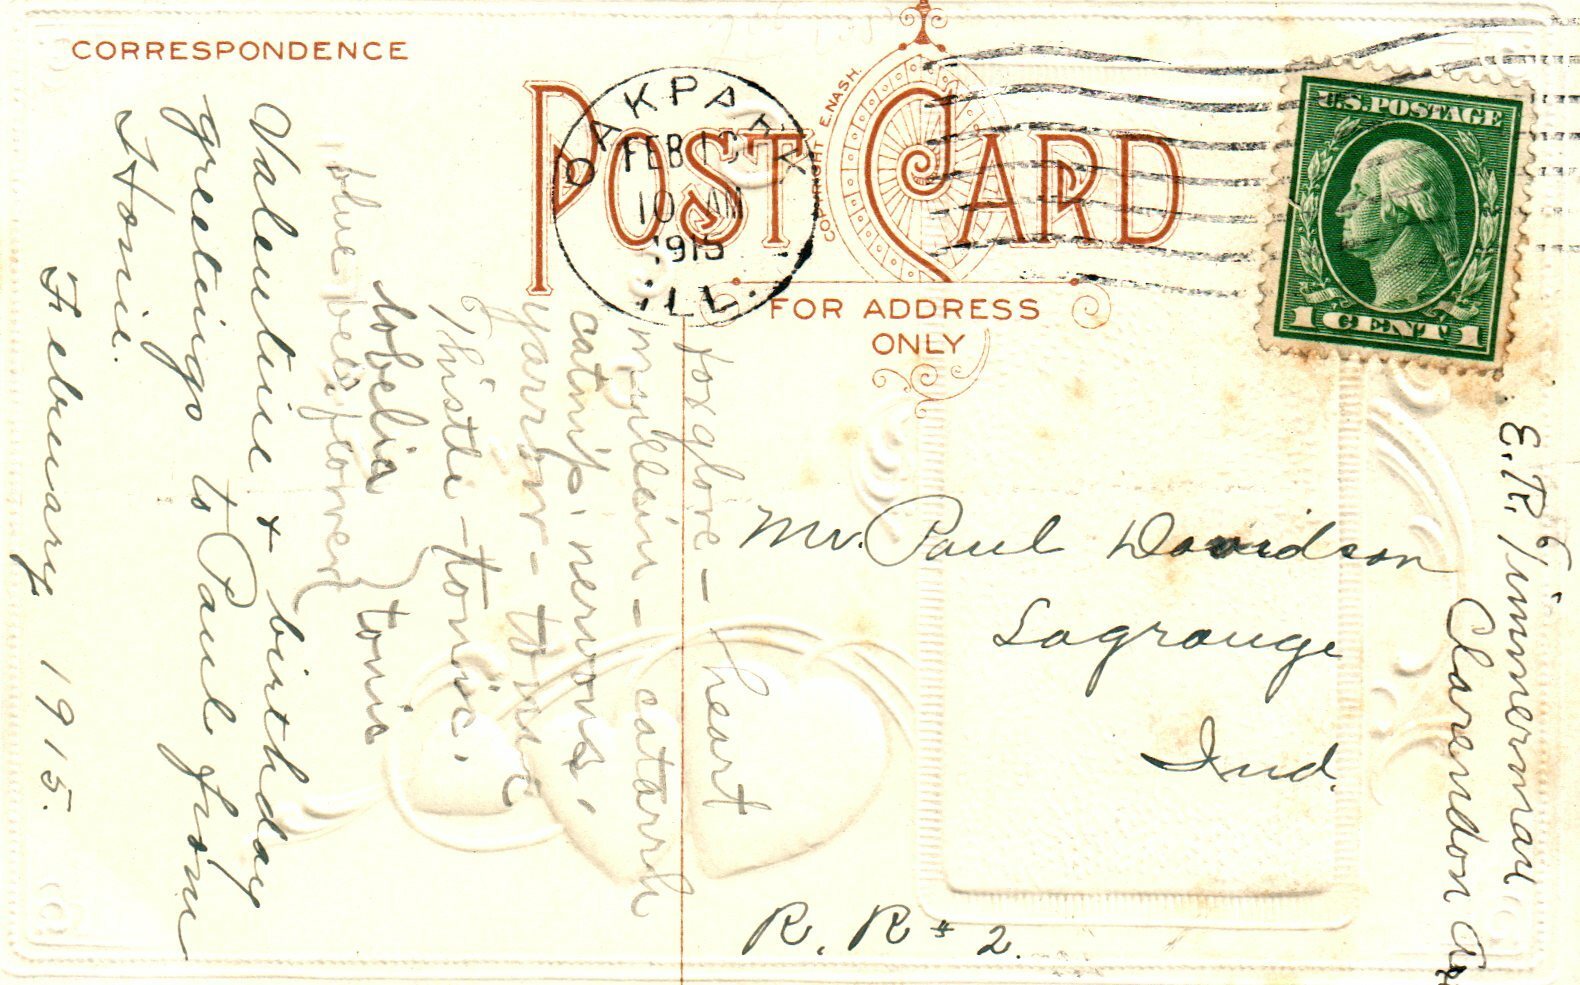 CORRESPONDENCE
POST CARD
COPYRIGHT E. NASH.
FOR ADDRESS
ONLY
OAK PARK
FEB 10
10 AM
1915
ILL.
U.S. POSTAGE
1 CENT 1
Valentine + birthday
greetings to Paul from
Honie.
February 1915.
foxglove - heart
mullein - catarrh
catnip. nervous.
yarrow - tonic
Thistle - tonic.
lobelia
blue bells flower } tonic
Mr. Paul Davidson
Lagrange
Ind.
R. R # 2.
E. R. Zimmerman
Clarendon